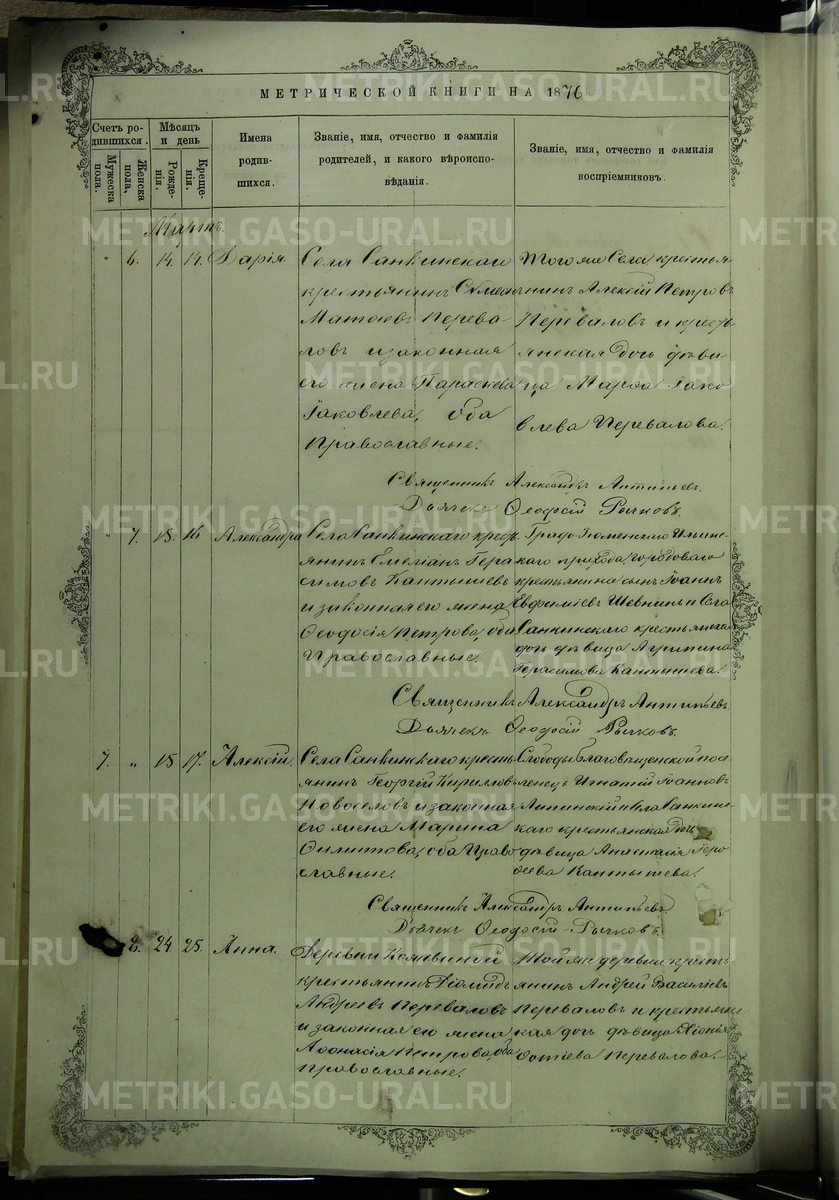 МЕТРИЧЕСКОЙ КНИГИ НА 1876
Счетъ ро-
дившихся.
Мужеска
пола.
Женска
пола,
Мѣсяцъ
и день
Рожде-
нія.
Креще-
нія.
Имена
родив-
шихся.
Званіе, имя, отчество и фамилія
родителей, и какого вѣроиспо-
вѣданія.
Званіе, имя, отчество и фамилія
воспріемниковъ.
Мартъ.
" 6. 14. 14. Дарія
Села Санкинскаго
крестьянинъ
Перева
ловъ и законная
его жена Параскева
Іаковлева, оба
Православные.
Того же Села крестья
нинъ Алексій Петровъ
Переваловъ и кресть
янская дочь дѣви
ца Марѳа Іако
влева Перевалова.
Священникъ Александръ Антипьевъ.
Дьячекъ Ѳеодосій Рычковъ.
" 7. 15. 16 Александра
Села Санкинскаго крест
янинъ Емеліанъ Гера
симовъ Кантышевъ
и законная его жена
Ѳеодосія Петрова, оба
Православные.
Града Тюменскаго Ильинс
каго прихода,
крестьянина сынъ Іоаннъ
Евфиміевъ и Села
Санкинскаго крестьянска
дочь дѣвица Агрипина
Герасимова Кантышева.
Священникъ Александръ Антипьевъ
Дьячекъ Ѳеодосій Рычковъ.
7. " 15 17. Алексій.
Села Санкинскаго кресть
янинъ Георгій Кирилловъ
Новоселовъ и законная
его жена Марина
оба Право
славные.
Слободы Благовѣщенской посе
ленецъ Игнатій Іоанновъ
и Села Санкинс
каго крестьянская дочь
дѣвица Анастасія
Кантышева.
Священникъ Александръ Антипьевъ
Дьячекъ Ѳеодосій Рычковъ.
8. 24. 25. Анна.
Деревни
крестьянинъ Діомидъ
Андреевъ Переваловъ
и законная его жена
Аѳонасія Петрова, оба
православные.
Той же деревни кресть
янинъ Андрей Васильевъ
Переваловъ и крестьянс
кая дочь дѣвица
Перевалова.
METRIKI.GASO-URAL.RU
METRIKI.GASO-URAL.RU
METRIKI.GASO-URAL.RU
METRIKI.GASO-URAL.RU
METRIKI.GASO-URAL.RU
METRIKI.GASO-URAL.RU
METRIKI.GASO-URAL.RU